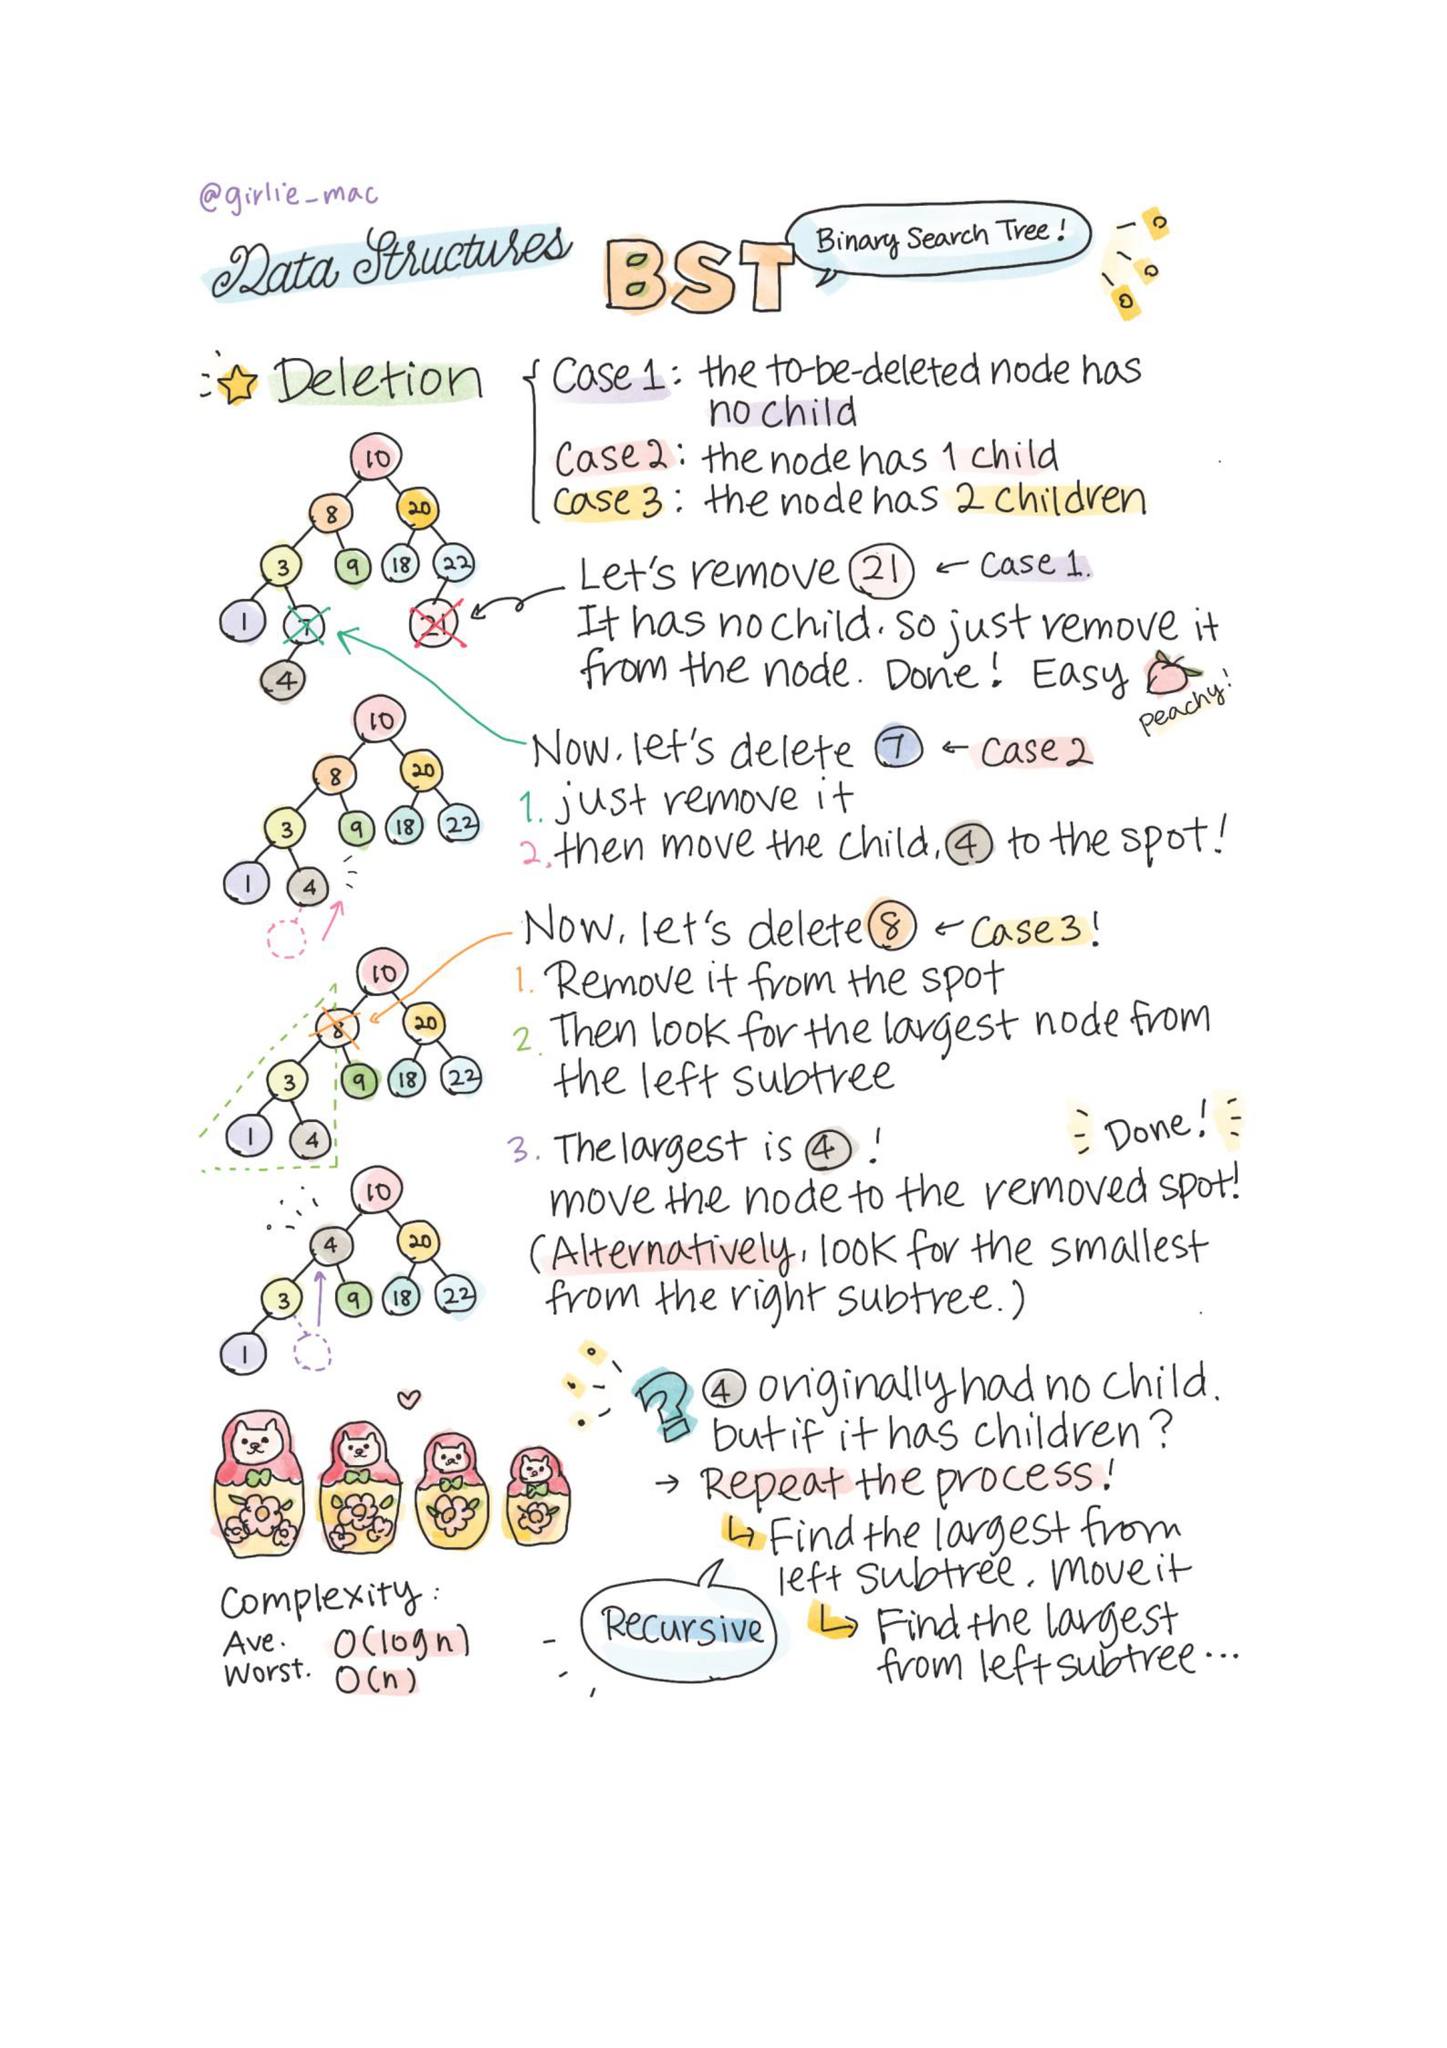 @girlie_mac
Data Structures
BST
Binary Search Tree!
Deletion
Case 1: the to-be-deleted node has
no child
Case 2: the node has 1 child
Case 3: the node has 2 children
10
8 20
3 9 18 22
1 7 21
4
Let's remove 21 ← Case 1.
It has no child. so just remove it
from the node. Done! Easy
peachy!
10
8 20
3 9 18 22
1 4
Now, let's delete 7 ← Case 2
1. just remove it
2. then move the child, 4 to the spot!
10
8 20
3 9 18 22
1 4
Now, let's delete 8 ← Case 3!
1. Remove it from the spot
2. Then look for the largest node from
the left subtree
3. The largest is 4!
Done!
move the node to the removed spot!
(Alternatively, look for the smallest
from the right subtree.)
10
4 20
3 9 18 22
1
? 4 originally had no child.
but if it has children?
→ Repeat the process!
↳ Find the largest from
left subtree. Move it
↳ Find the largest
from left subtree...
Recursive
Complexity:
Ave. O(log n)
Worst. O(n)